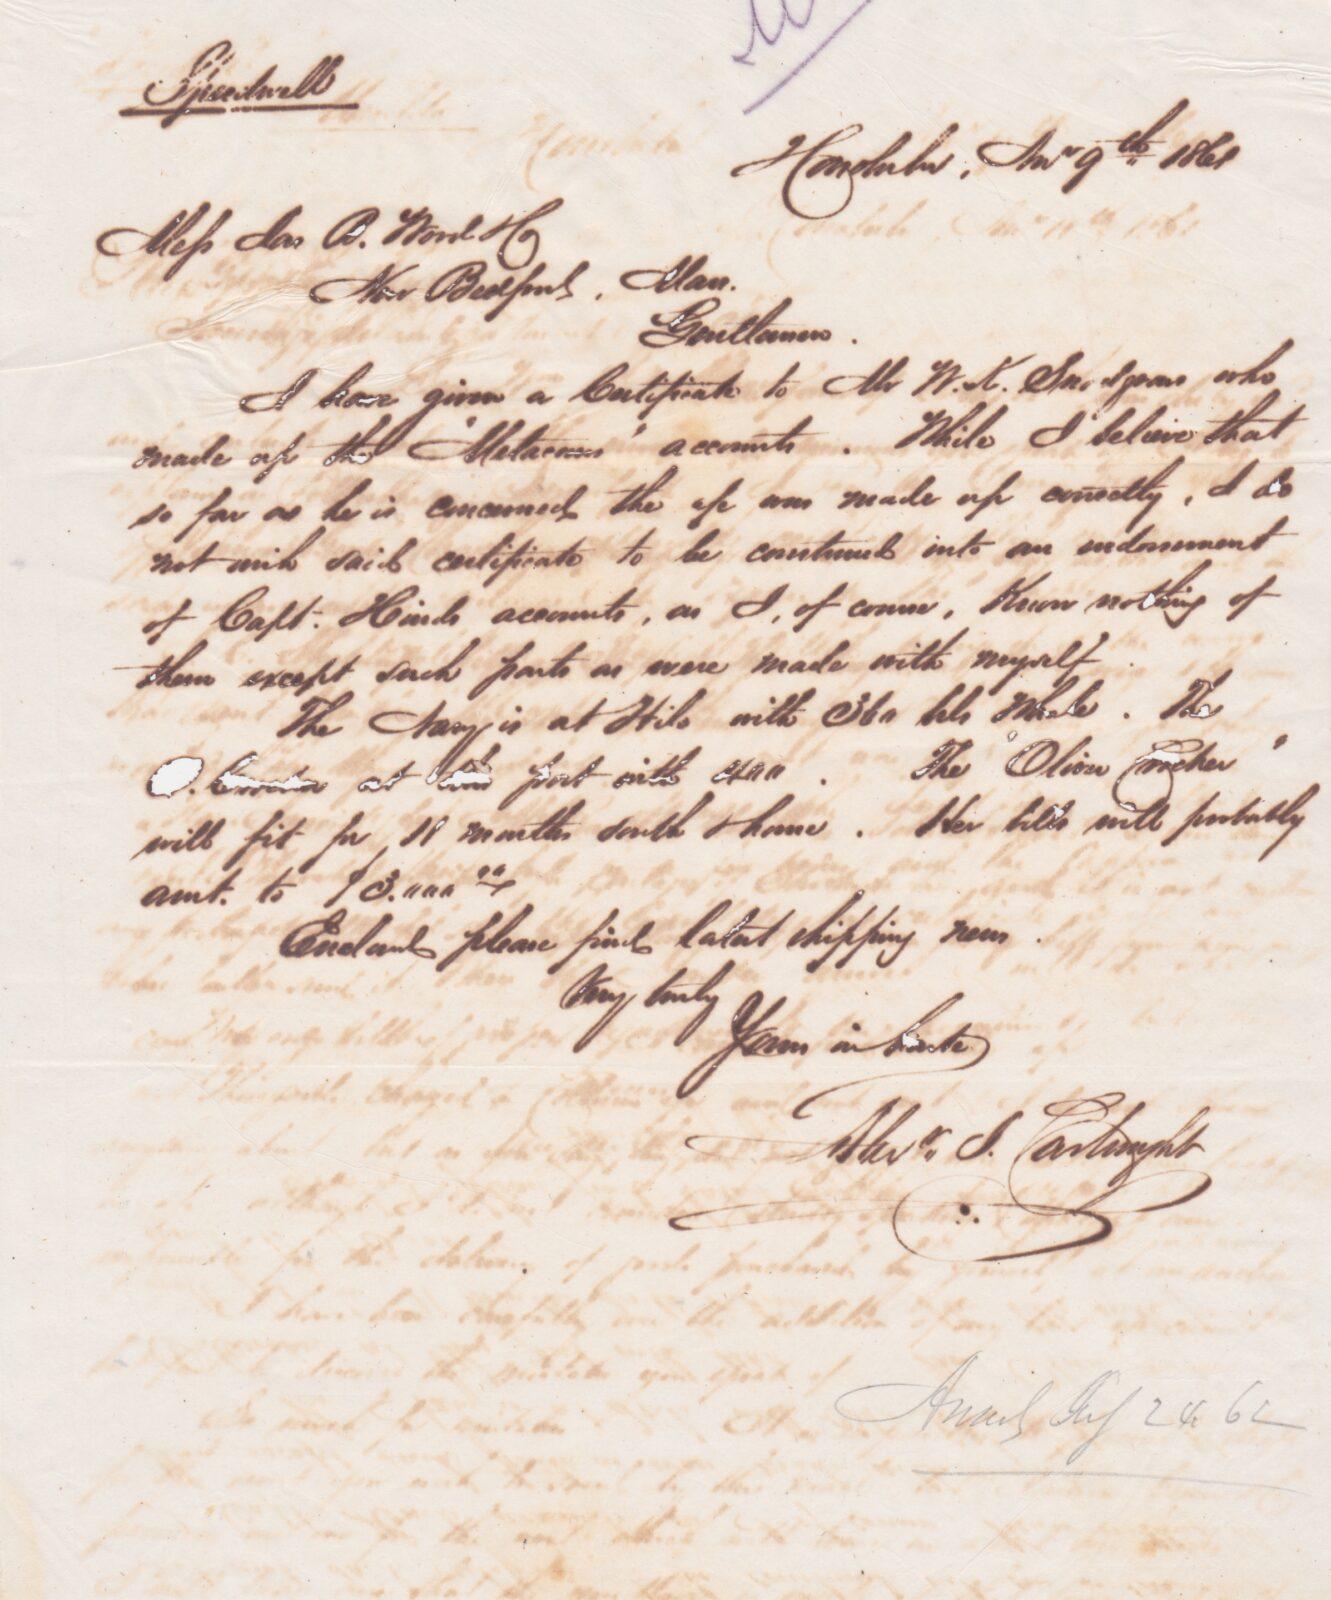 Speedwell
Honolulu, Nov 9th 1861
Mess Jas B. Wood & Co
New Bedford, Mass.
Gentlemen.
I have given a Certificate to Mr W. K. Snodgrass who
made up the "Metacom's" accounts. While I believe that
so far as he is concerned the a/c was made up correctly, I do
not wish said certificate to be construed into an endorsement
of Capt. Hinds accounts, as I, of course, know nothing of
them except such parts as were made with myself.
The Navy is at Hilo with 360 bbls Whale. The
O. Crocker at this port with 400. The "Oliver Crocker"
will fit for 18 months south & home. Her bills will probably
amt. to $3.000 00
Enclosed please find latest shipping news.
Very truly
Yours in haste
Alexr. J. Cartwright
24 62